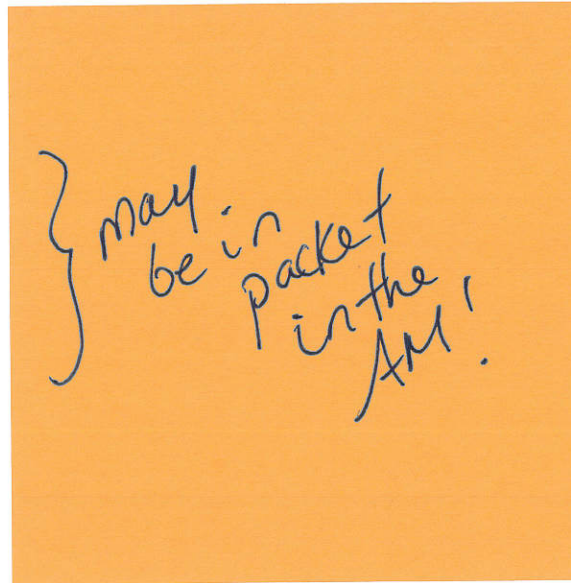 } may
be in
packet
in the
AM!